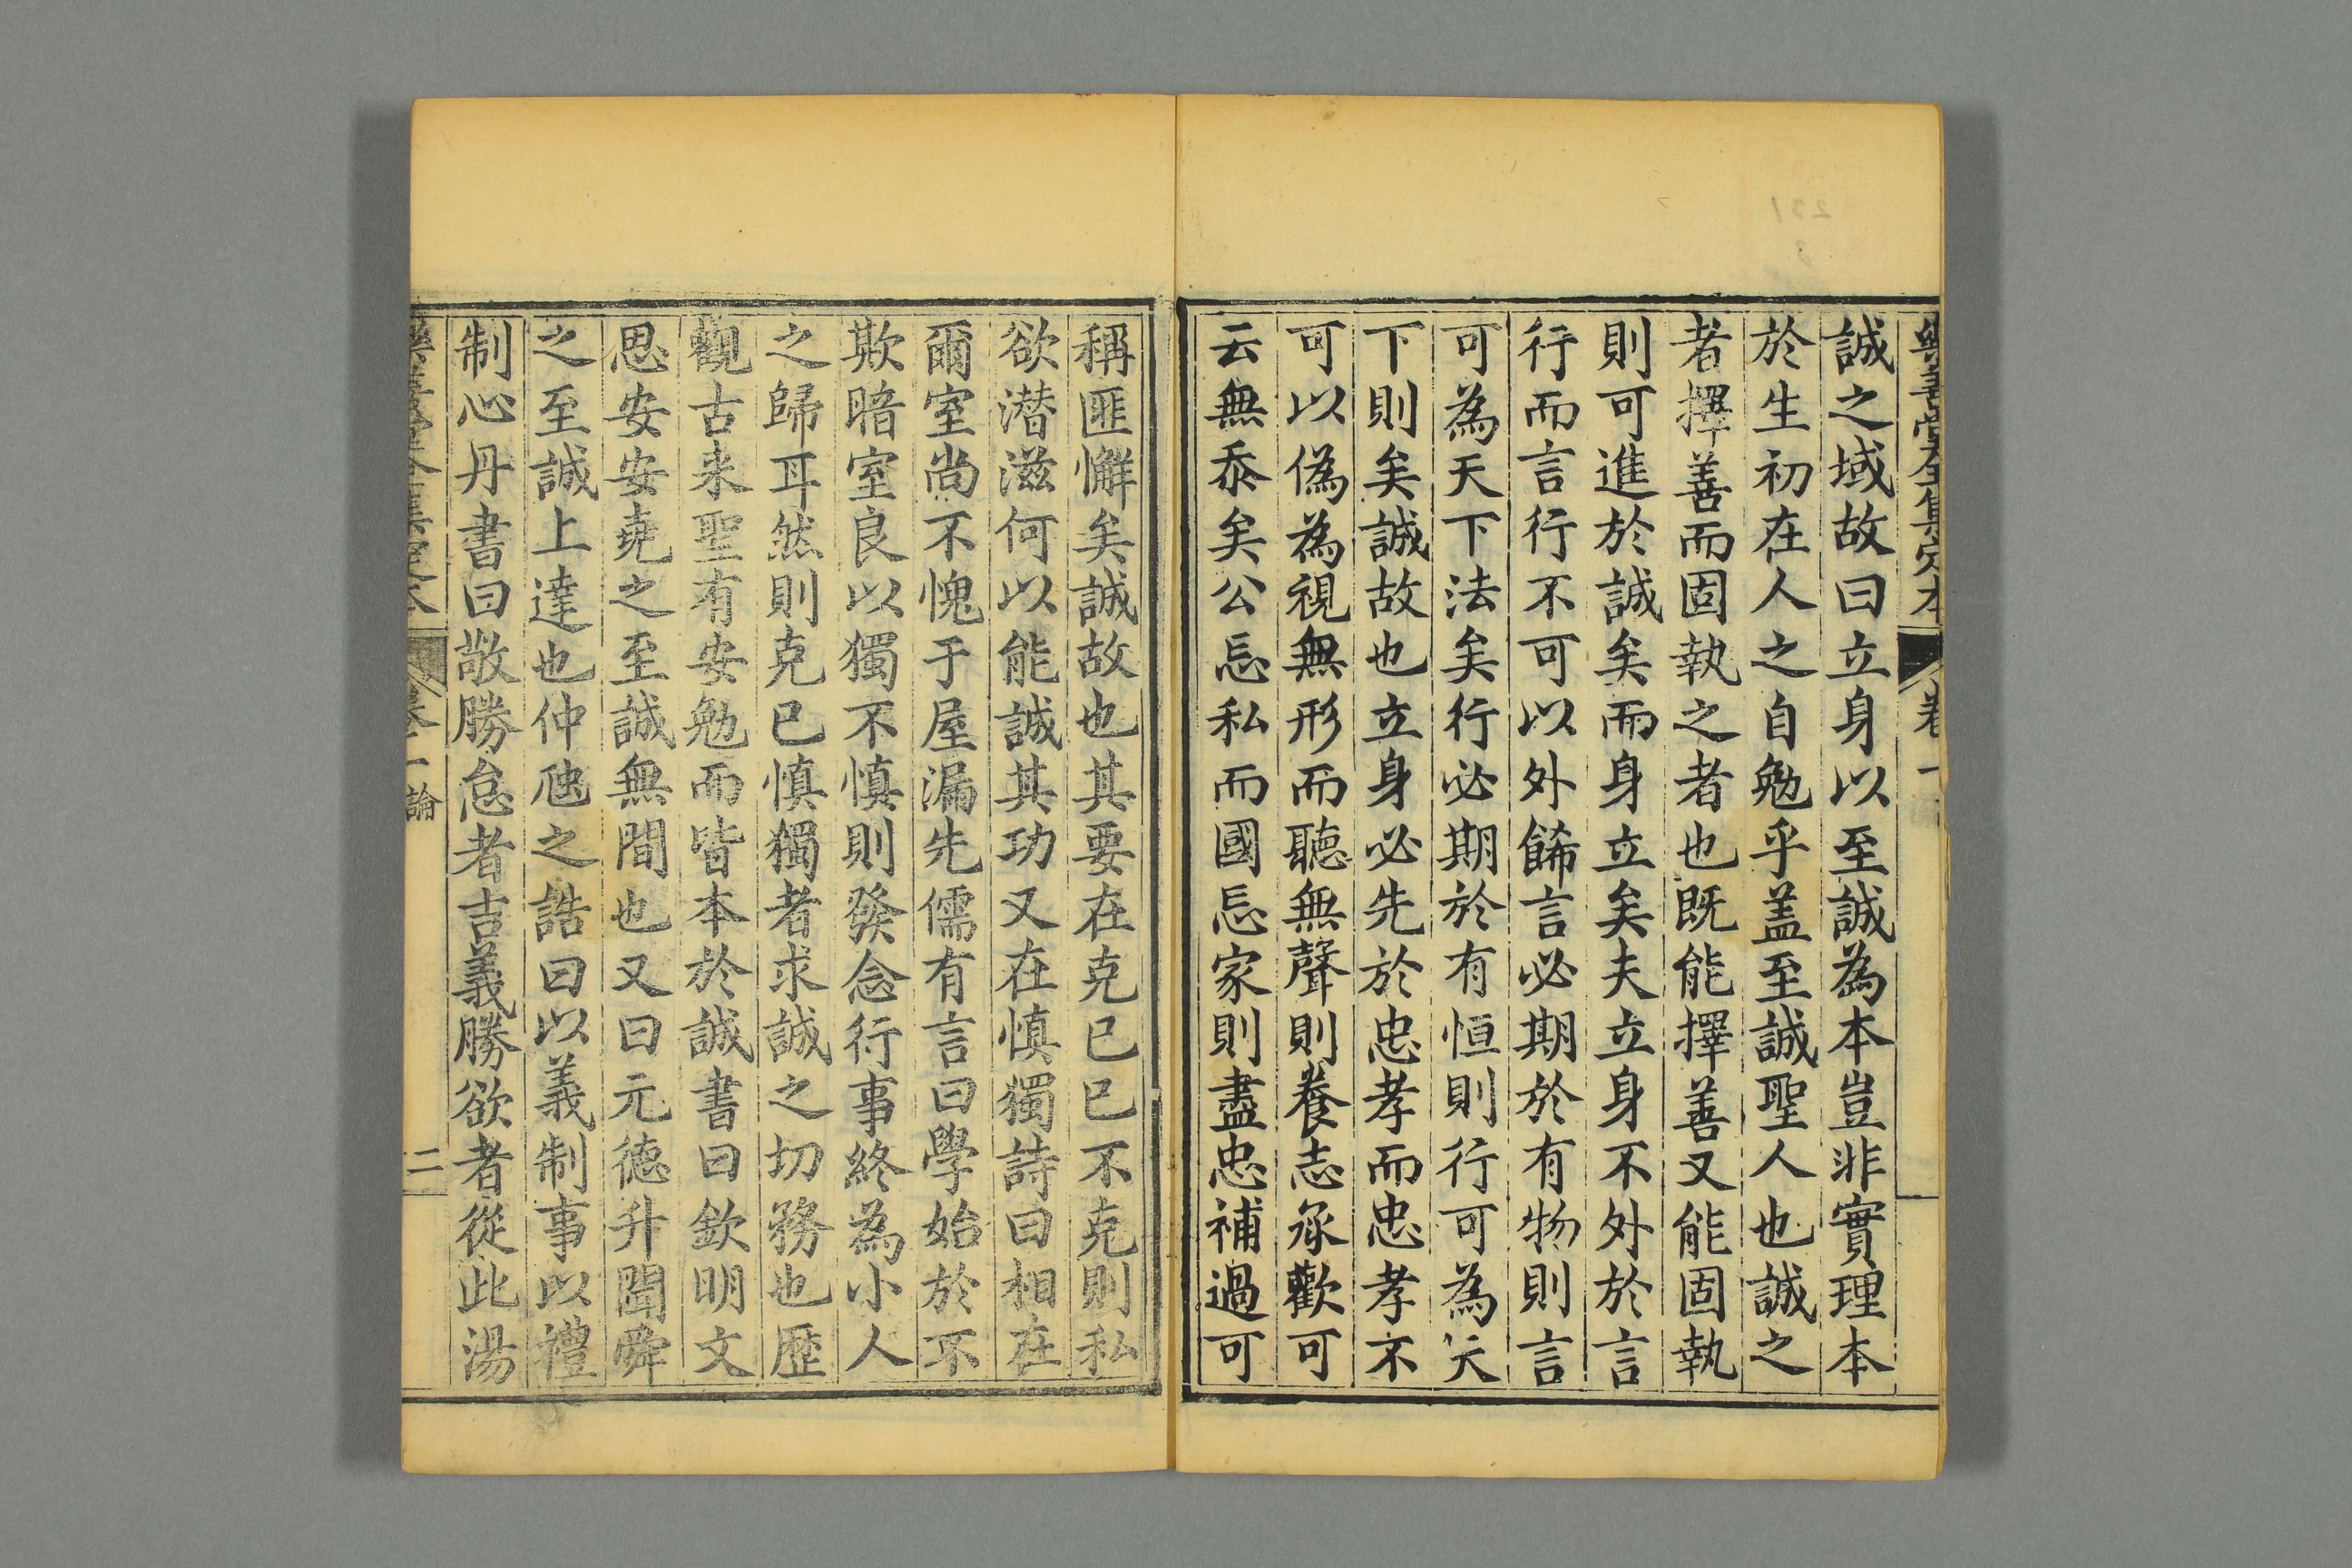 樂善堂全集定本 卷一
誠之域故曰立身以至誠為本豈非實理本
於生初在人之自勉乎盖至誠聖人也誠之
者擇善而固執之者也既能擇善又能固執
則可進於誠矣而身立矣夫立身不外於言
行而言行不可以外餙言必期於有物則言
可為天下法矣行必期於有恒則行可為天
下則矣誠故也立身必先於忠孝而忠孝不
可以偽為視無形而聽無聲則養志承歡可
云無忝矣公忘私而國忘家則盡忠補過可
稱匪懈矣誠故也其要在克已已不克則私
欲潜滋何以能誠其功又在慎獨詩曰相在
爾室尚不愧于屋漏先儒有言曰學始於不
欺暗室良以獨不慎則發念行事終為小人
之歸耳然則克已慎獨者求誠之切務也歴
觀古来聖有安勉而皆本於誠書曰欽明文
思安安堯之至誠無間也又曰元德升聞舜
之至誠上達也仲虺之誥曰以義制事以禮
制心丹書曰敬勝怠者吉義勝欲者從此湯
樂善堂全集定本 卷一 論 二